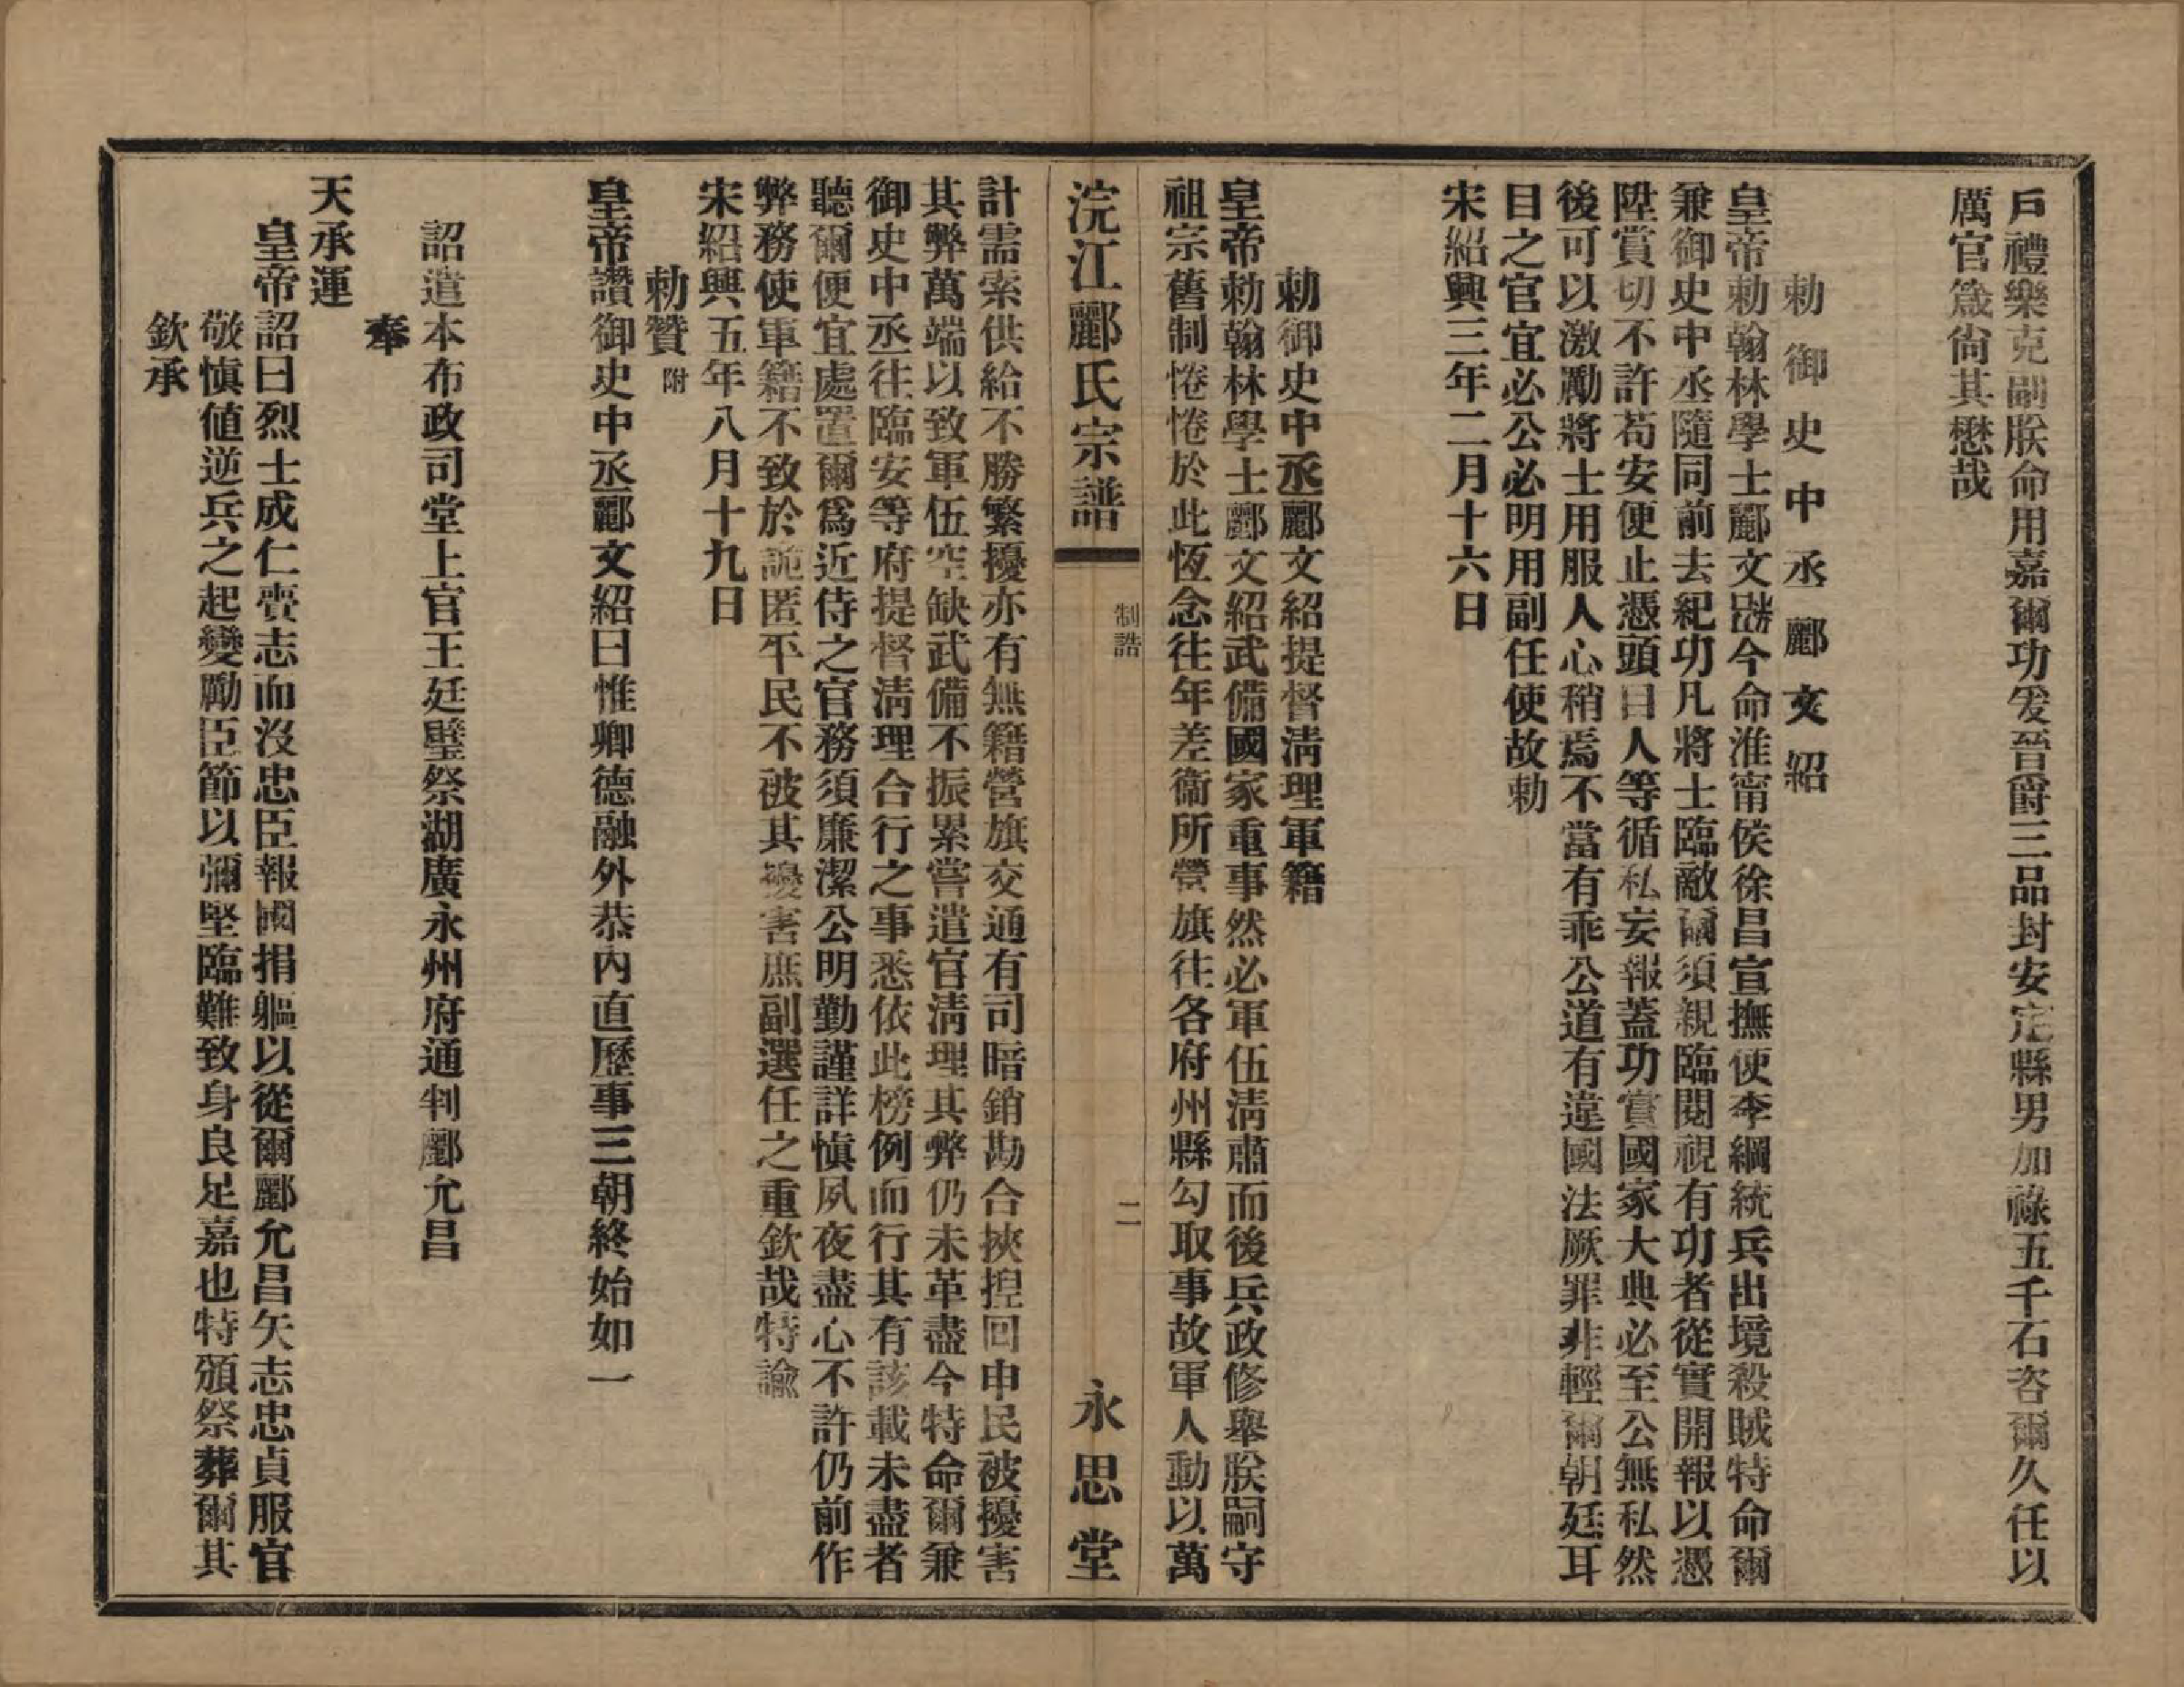 戶禮樂克副朕命用嘉爾功爰晉爵三品封安定縣男加祿五千石咨爾久任以
厲官箴尙其懋哉
勅御史中丞酈文紹
皇帝勅翰林學士酈文紹今命淮甯侯徐昌宣撫使李綱統兵出境殺賊特命爾
兼御史中丞隨同前去紀功凡將士臨敵爾須親臨閱視有功者從實開報以憑
陞賞切不許苟安便止憑頭目人等循私妄報蓋功賞國家大典必至公無私然
後可以激勵將士用服人心稍焉不當有乖公道有違國法厥罪非輕爾朝廷耳
目之官宜必公必明用副任使故勅
宋紹興三年二月十六日
勅御史中丞酈文紹提督淸理軍籍
皇帝勅翰林學士酈文紹武備國家重事然必軍伍淸肅而後兵政修舉朕嗣守
祖宗舊制惓惓於此恆念往年差衞所營旗往各府州縣勾取事故軍人動以萬
浣江酈氏宗譜
制誥
二
永思堂
計需索供給不勝繁擾亦有無籍營旗交通有司暗銷勘合挾捏回申民被擾害
其弊萬端以致軍伍空缺武備不振累嘗遣官淸理其弊仍未革盡今特命爾兼
御史中丞往臨安等府提督淸理合行之事悉依此榜例而行其有該載未盡者
聽爾便宜處置爾爲近侍之官務須廉潔公明勤謹詳愼夙夜盡心不許仍前作
弊務使軍籍不致於詭匿平民不被其擾害庶副選任之重欽哉特諭
宋紹興五年八月十九日
勅贊附
皇帝讚御史中丞酈文紹曰惟卿德融外恭內直歷事三朝終始如一
詔遣本布政司堂上官王廷璧祭湖廣永州府通判酈允昌
奉
天承運
皇帝詔曰烈士成仁賫志而沒忠臣報國捐軀以從爾酈允昌矢志忠貞服官
敬愼値逆兵之起變勵臣節以彌堅臨難致身良足嘉也特頒祭葬爾其
欽承